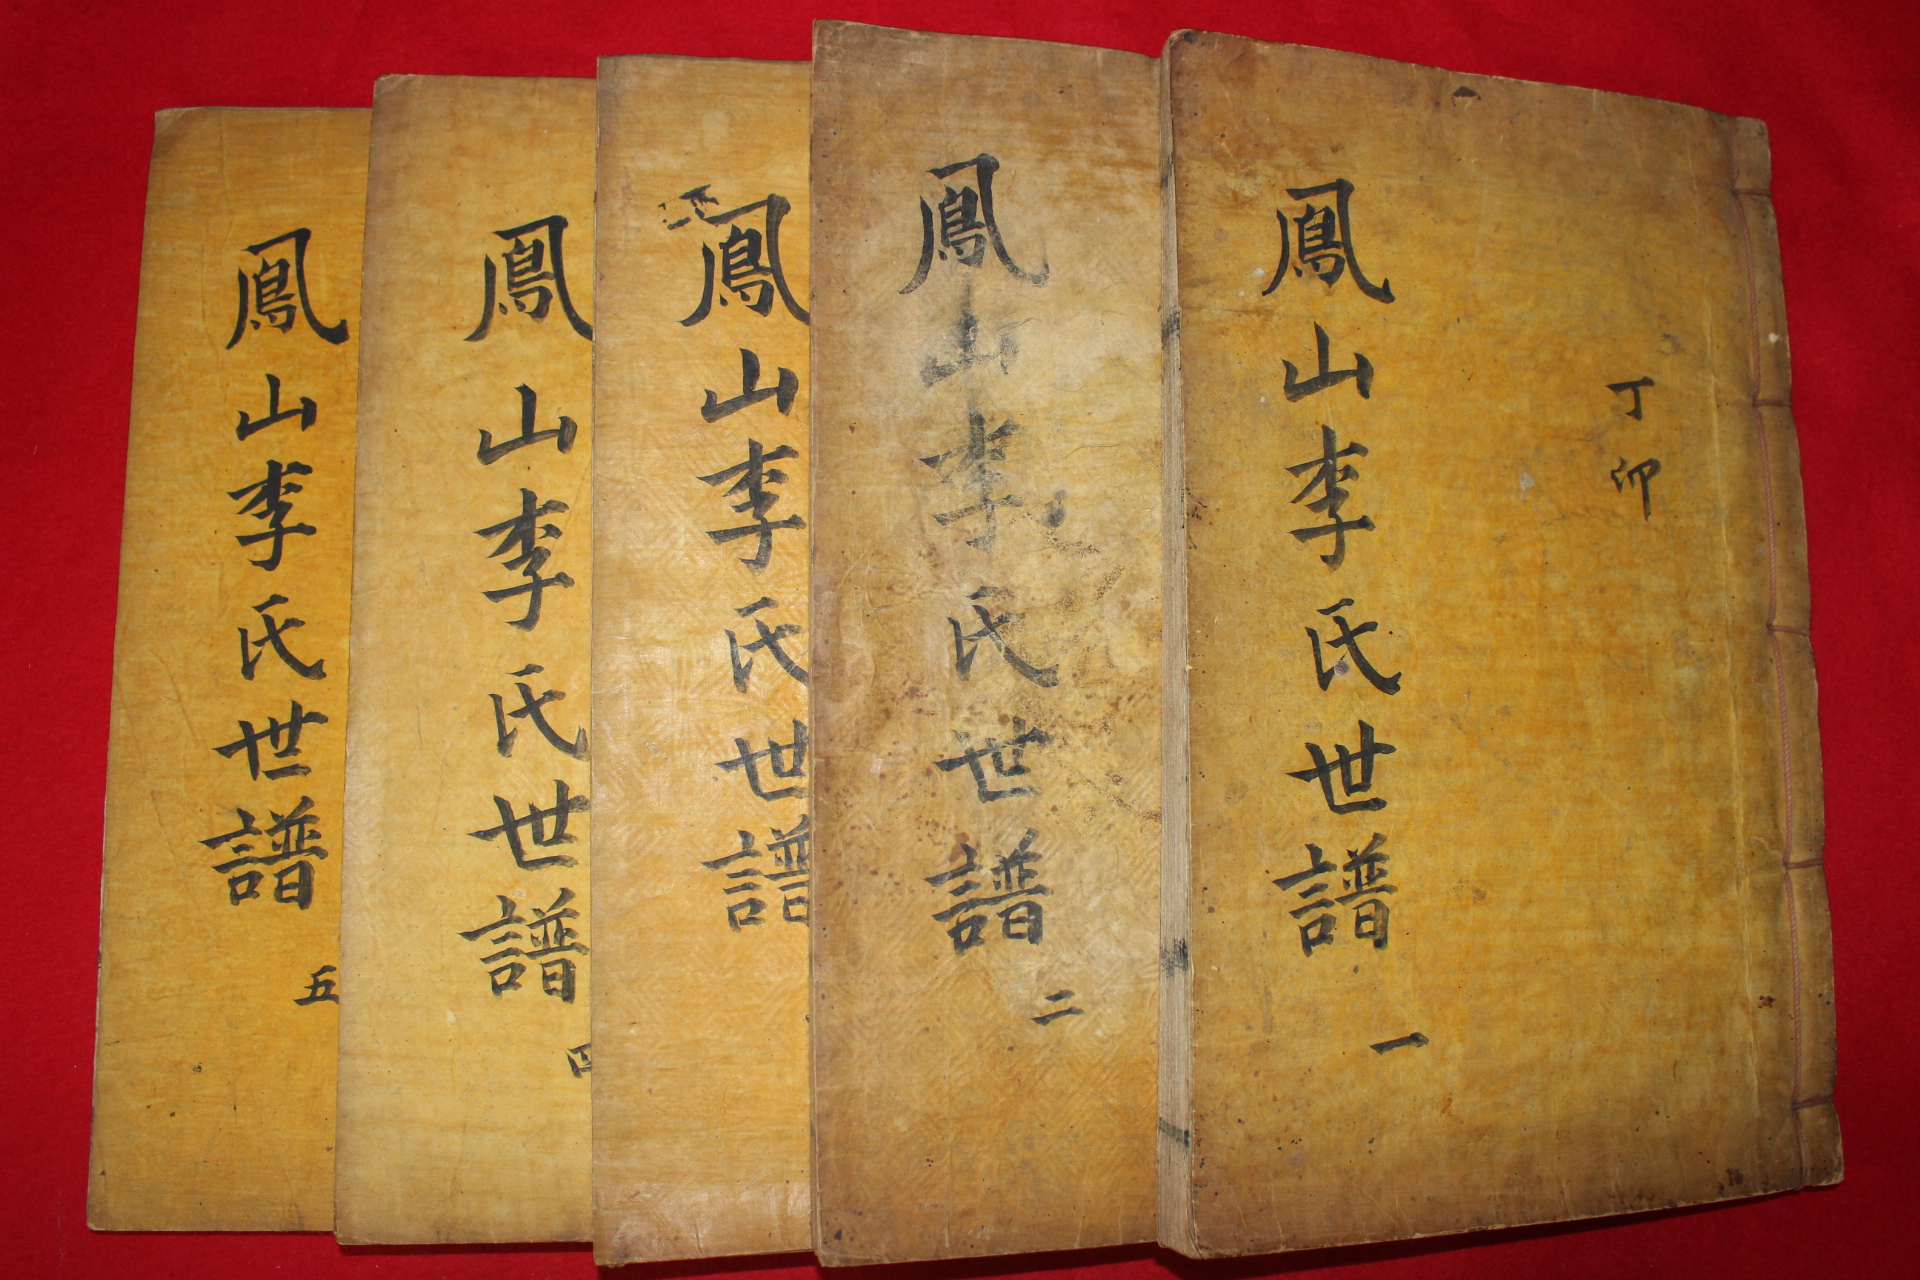 丁卯
鳳山李氏世譜 一
鳳山李氏世譜 二
鳳山李氏世譜
鳳山李氏世譜 四
鳳山李氏世譜 五